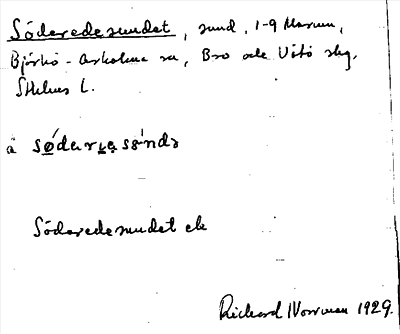 Söderedesundet, sund, 1-9 Marum,
Björkö-Arholma sn, Bro och Vätö skg,
Sthlms l.
a̎ sǿdərɛssùndə
Söderedesundet ek
Rickard Norrman 1929.